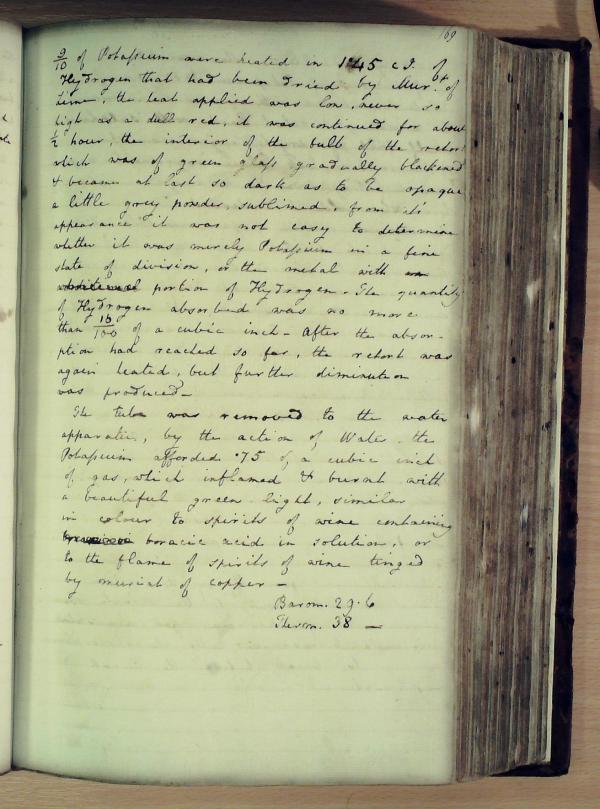 169
9/10 of Potassium were heated in 1.45 c.I. of
Hydrogen that had been dried by Mur.t of
Lime, the heat applied was low, never so
high as a dull red, it was continued for about
1/2 hour, the interior of the bulb of the retort
which was of green glass gradually blackened
& became at last so dark as to be opaque
a little grey powder, sublimed, from it's
appearance it was not easy to determine
whether it was merely Potassium in a fine
state of division, or the metal with
portion of Hydrogen. The quantity
of Hydrogen absorbed was no more
than /100 of a cubic inch - After the absor-
ption had reached so far, the retort was
again heated, but further diminution
was produced -
The tube was removed to the water
apparatus, by the action of Water, the
Potassium afforded .75 of a cubic inch
of gas, which inflamed & burnt with
a beautiful green light, similar
in colour to spirits of wine containing
boracic acid in solution, or
to the flame of spirits of wine tinged
by muriat of copper -
Barom. 29.6
Therm. 38 -